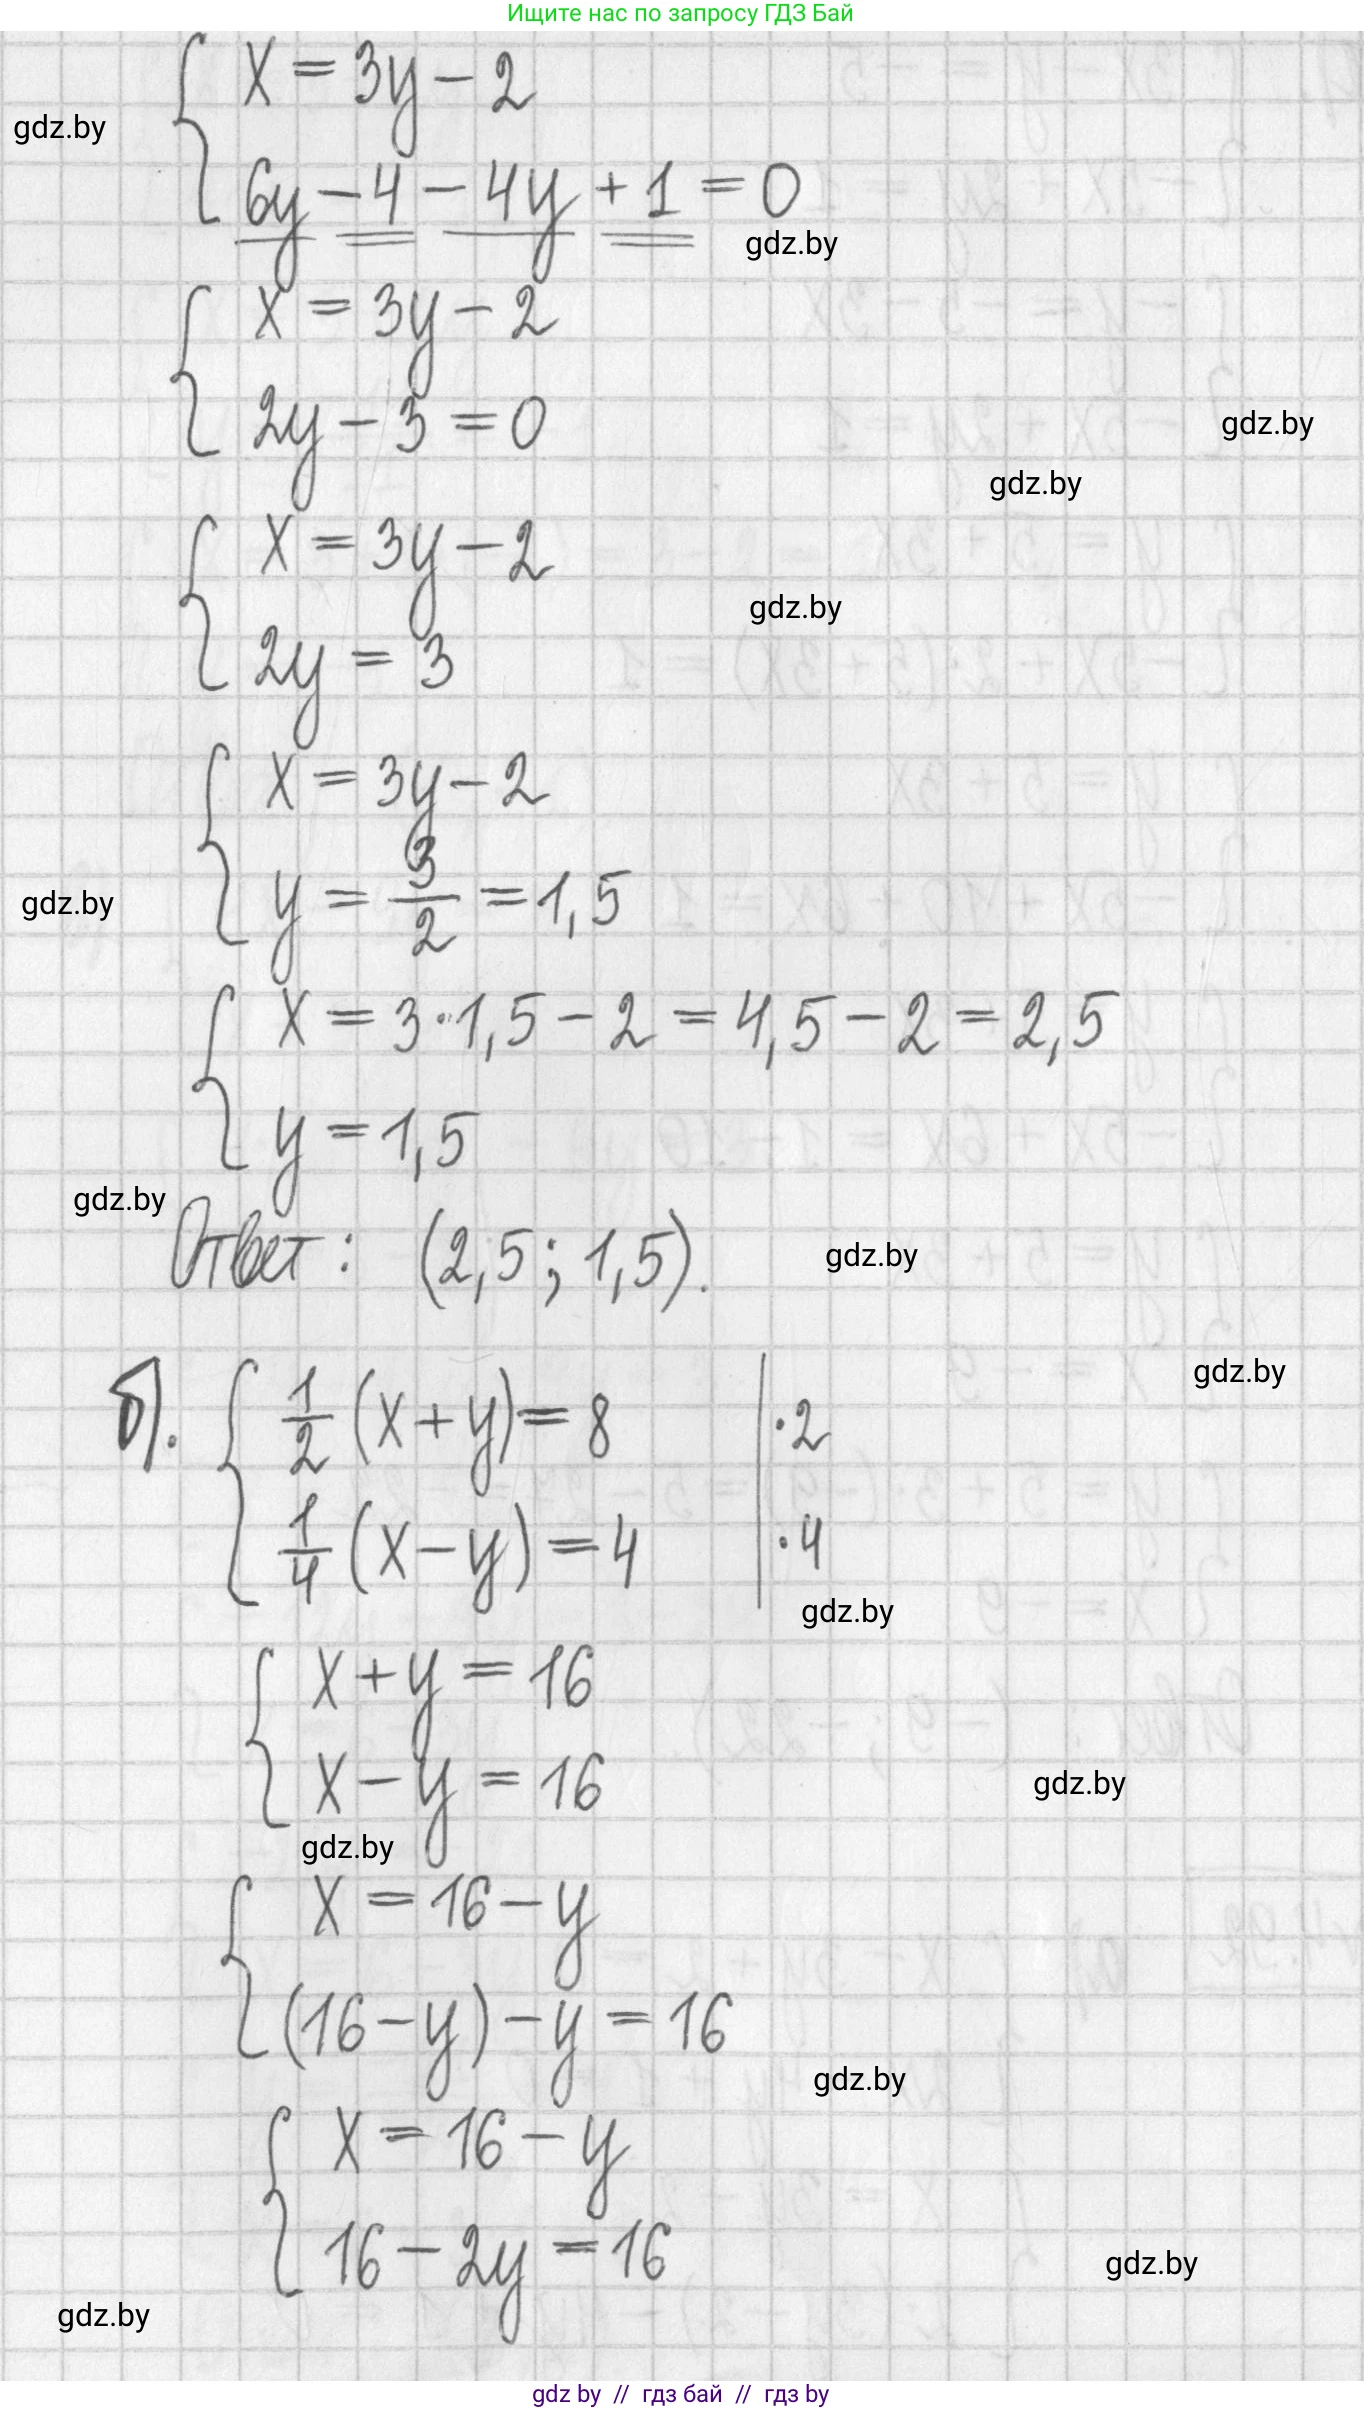 Ищите нас по запросу ГДЗ Бай
x = 3y - 2
gdz.by
6y - 4 - 4y + 1 = 0
gdz.by
x = 3y - 2
2y - 3 = 0
gdz.by
gdz.by
x = 3y - 2
gdz.by
2y = 3
x = 3y - 2
y = 3/2 = 1,5
gdz.by
x = 3·1,5 - 2 = 4,5 - 2 = 2,5
y = 1,5
gdz.by
Ответ: (2,5; 1,5).
gdz.by
gdz.by
б). 1/2 (x + y) = 8 | ·2
1/4 (x - y) = 4 | ·4
gdz.by
x + y = 16
x - y = 16
gdz.by
gdz.by
x = 16 - y
(16 - y) - y = 16
gdz.by
x = 16 - y
16 - 2y = 16
gdz.by
gdz.by
gdz by // гдз бай // гдз by